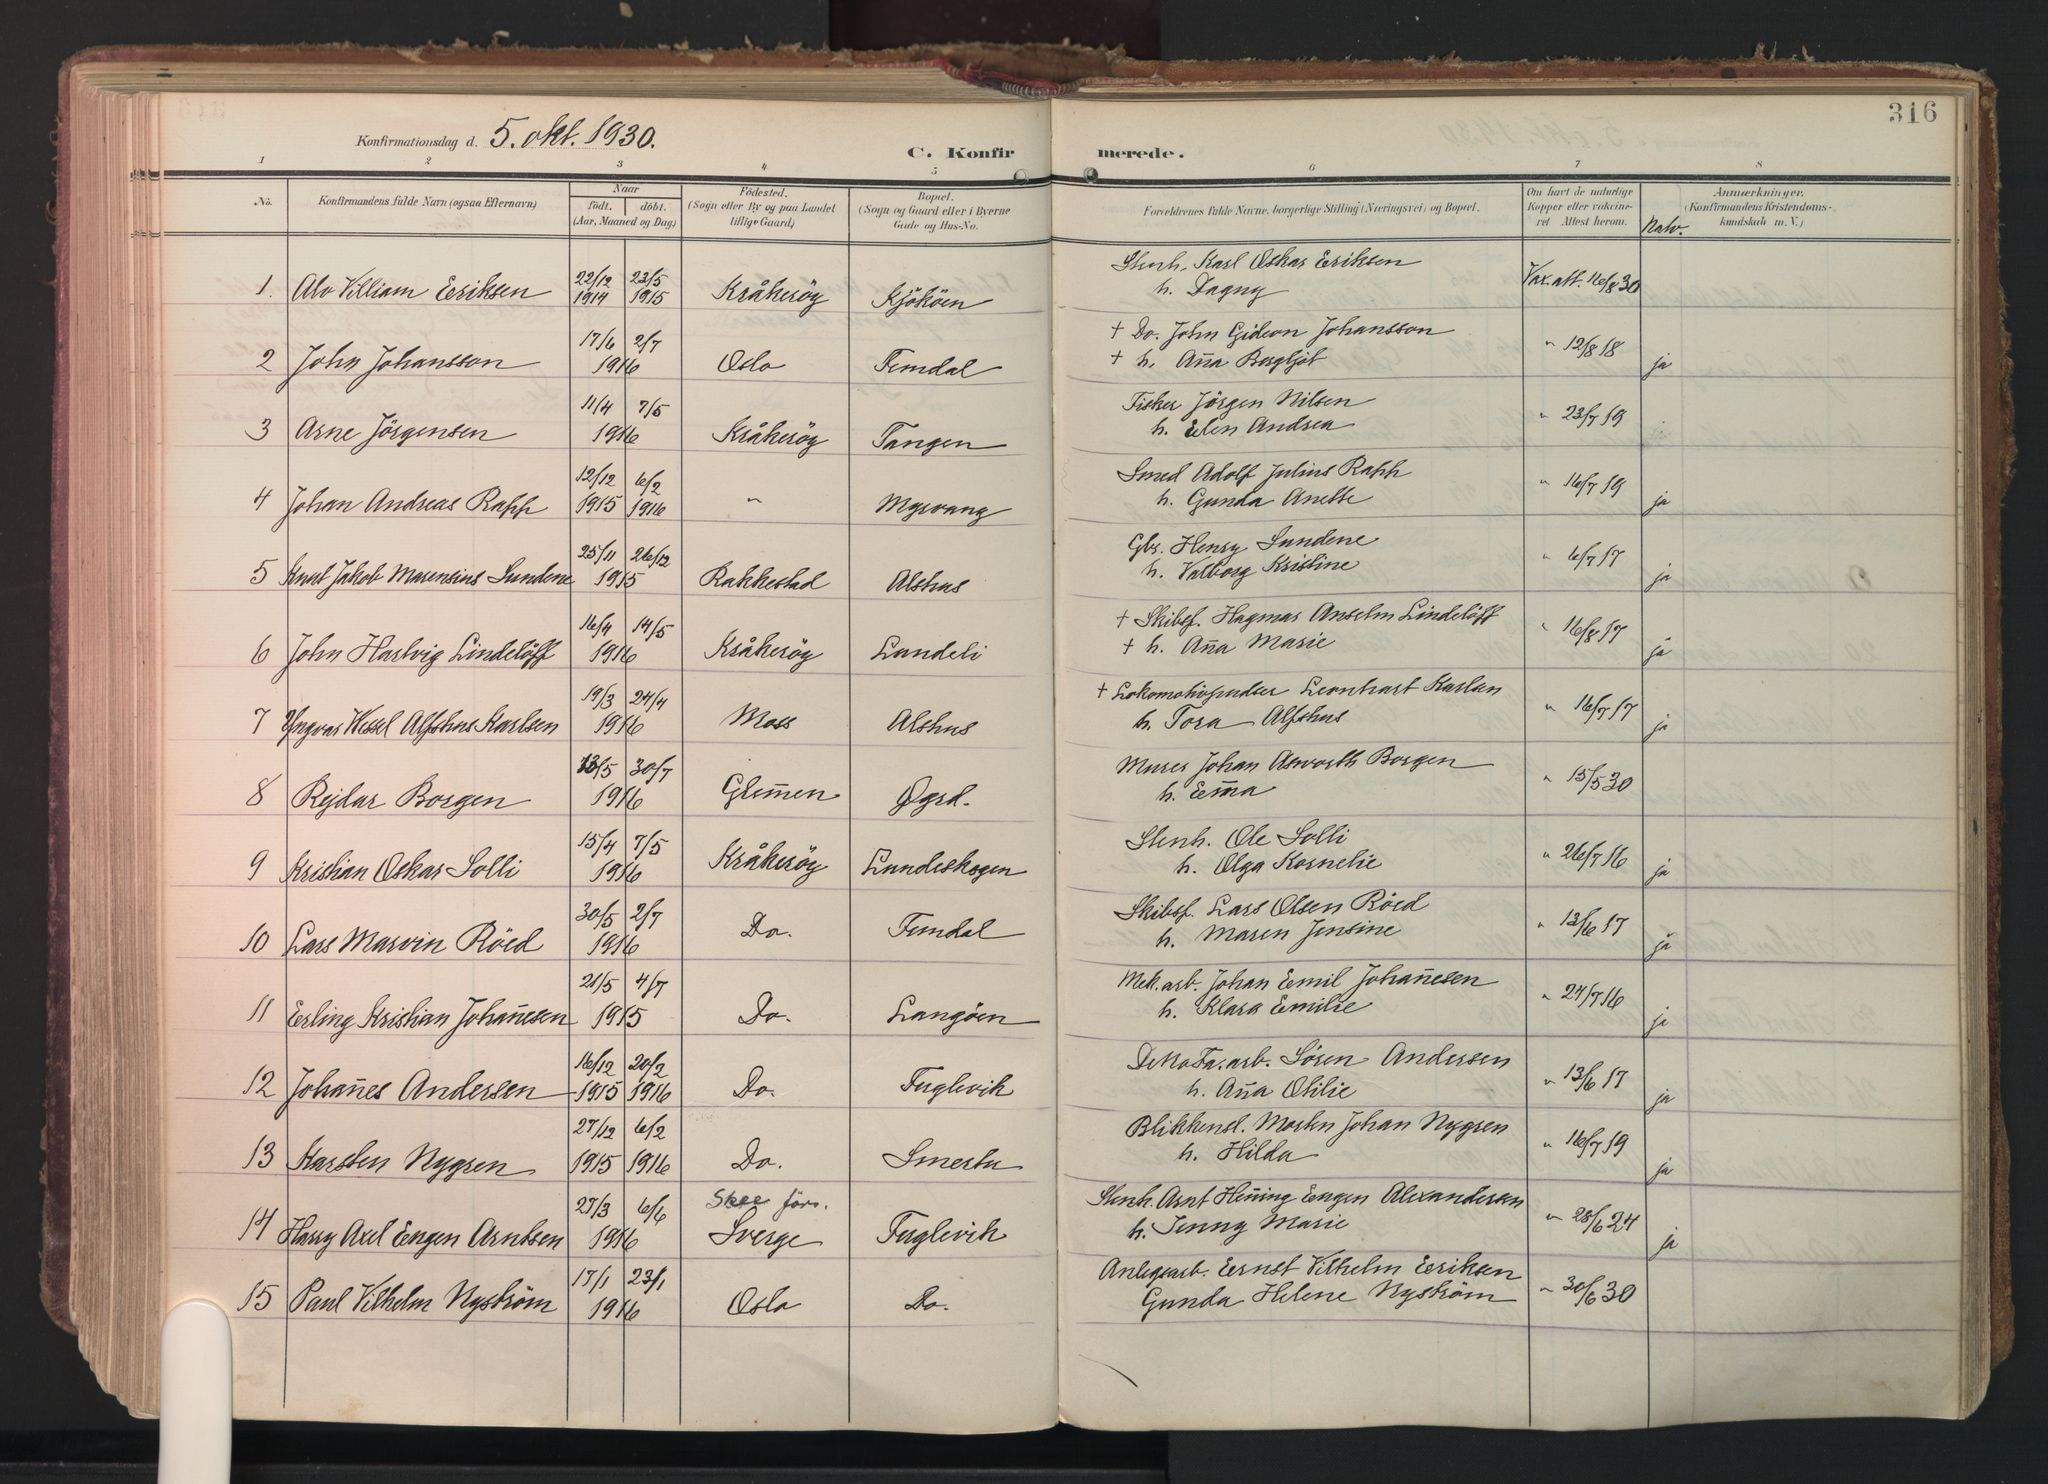 316
Konfirmationsdag d. 5. okt. 1930.
C. Konfirmerede.
1 2 3 4 5 6 7 8
No. Konfirmandens fulde Navn (ogsaa Efternavn) Naar født. døbt. (Aar, Maaned og Dag) Fødested. (Sogn eller By og paa Landet tillige Gaard) Bopæl. (Sogn og Gaard eller i Byerne Gade og Hus-No. Forældrenes fulde Navne, borgerlige Stilling (Næringsvei) og Bopæl. Om havt de naturlige Kopper eller vakcineret Attest herom. Natv. Anmærkninger. (Konfirmandens Kristendomskundskab m. V.)
1. Alv Villiam Eriksen 22/12 1914 23/5 1915 Kråkerøy Kjøköen Stenh. Karl Oskar Eriksen h. Dagny Vax. att. 16/8 30
2 John Johansson 17/6 2/7 1916 Oslo Femdal + Do. John Gideon Johansson + h. Anna Bergljot " 12/8 18 ja
3 Arne Jörgensen 11/4 7/5 1916 Kråkeröy Tangen Fisker Jörgen Nilsen h. Elen Andrea " 23/7 19
4 Johan Andreas Rapp 12/12 1915 6/2 1916 " Mysvang Smed Adolf Julius Rapp h. Gunda Anette " 16/7 19 ja
5 Knut Jakob Marensius Sundene 25/11 26/12 1915 Rakkestad Alshus Gbr. Henry Sundene h. Valborg Kristine " 6/7 17 ja
6 John Hartvig Lindelöff 16/4 14/5 1916 Kråkeröy Lundeli + Skibsf. Hagmar Anselm Lindelöff + h. Anna Marie " 16/8 17 ja
7 Yngvar Wessel Alfshus Karlsen 19/3 24/4 1916 Moss Alshus + Lokomotivpudser Leonhart Karlsen h. Tora Alfshus " 16/7 17 ja
8 Rejdar Borgen 13/5 30/7 1916 Glemmen Øgrd. Murer Johan Asworth Borgen h. Emma " 15/5 30
9 Kristian Oskar Solli 15/4 7/5 1916 Kråkeröy Lundeskogen Stenh. Ole Solli h. Olga Kornelie " 26/7 16 ja
10 Lars Marvin Röed 30/5 2/7 1916 Do. Femdal Skibsf. Lars Olsen Röed h. Maren Jensine " 13/6 17 ja
11 Erling Kristian Johannesen 21/5 4/7 1915 Do. Langöen Mek. arb. Johan Emil Johannesen h. Klara Emilie " 24/7 16 ja
12 Johannes Andersen 16/12 1915 20/2 1916 Do. Fuglevik DeNoFa. arb. Sören Andersen h. Anna Otilie " 13/6 17 ja
13 Karsten Nygren 27/12 1915 6/2 1916 Do. Smertu Blikkensl. Morten Johan Nygren h. Hilda " 16/7 19 ja
14 Harry Axel Engen Arntsen 27/3 6/6 1916 Skee förs. Sverge Fuglevik Stenh. Arnt Henning Engen Alexandersen h. Jenny Marie " 28/6 24 ja
15 Paul Vilhelm Nyström 17/1 23/1 1916 Oslo Do. Anlegsarb. Ernst Vilhelm Eriksen Gunda Helene Nyström " 30/6 30